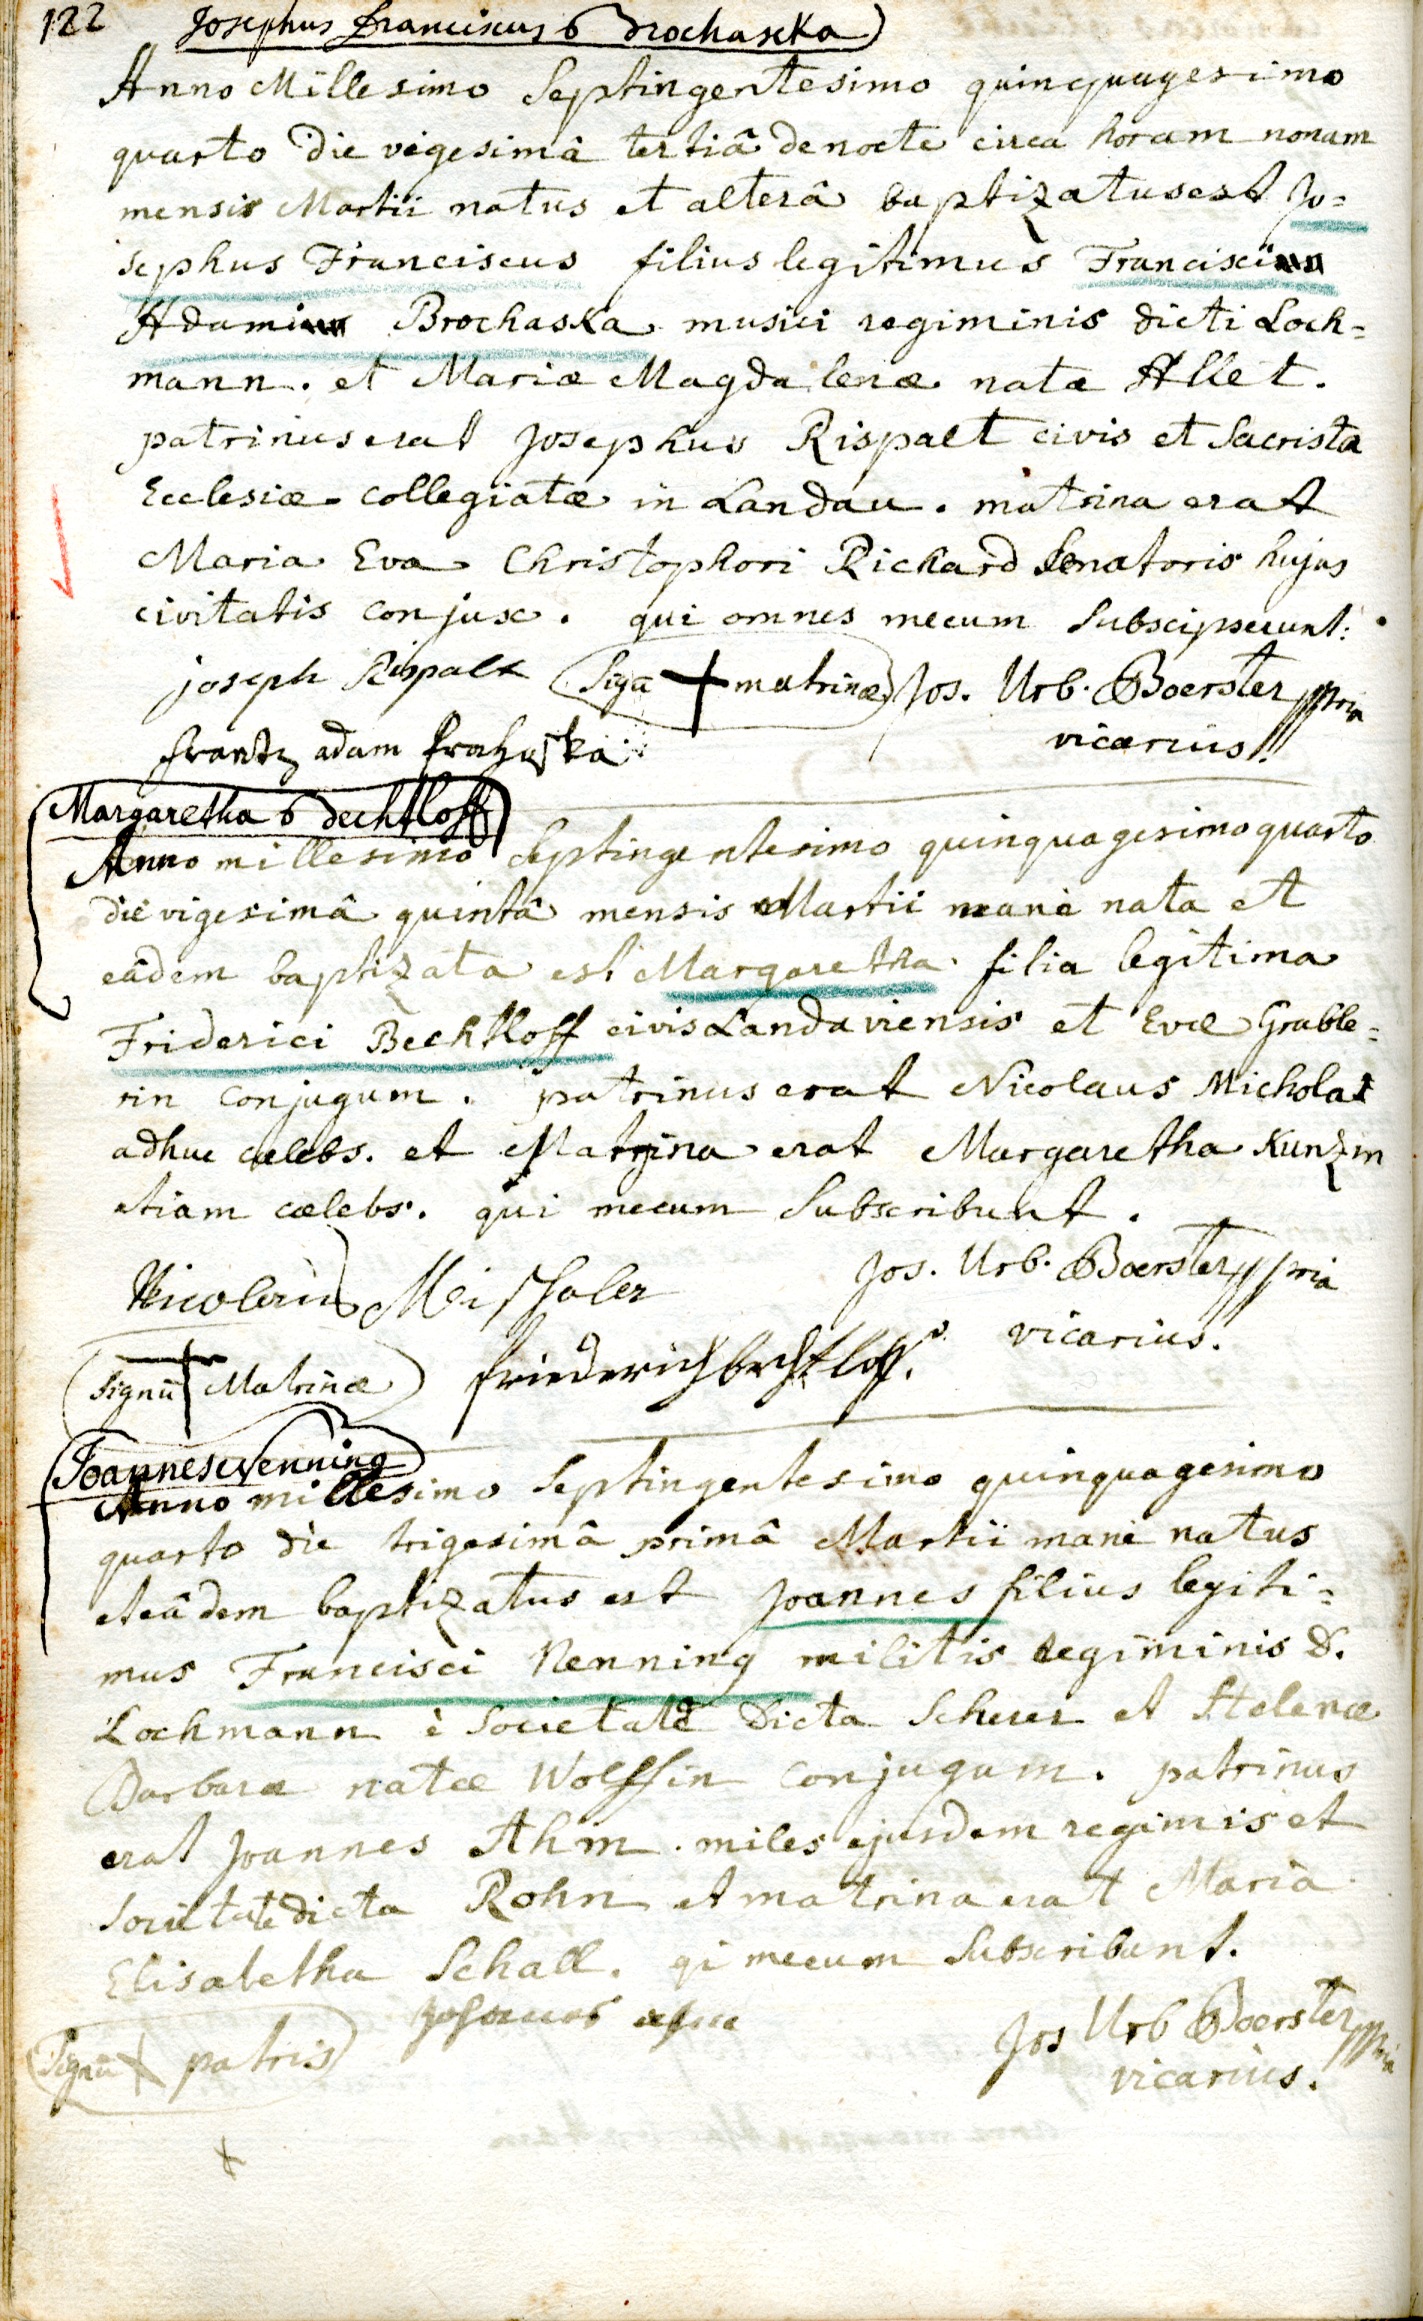 122 Josephus Franciscus Brochaseka
Anno Millesimo Septingentesimo quinquagesimo
quarto die vigesimâ tertiâ de nocte circa horam nonam
mensis Martii natus et alterâ baptizatus est Jo=
sephus Franciscus filius legitimus Francisci
Adami Brochaska musici regiminis dicti Loch=
mann. et Mariæ Magdalenæ natæ Allet.
patrinus erat Josephus Rispalt civis et Sacrista
Ecclesiæ collegiatæ in Landau. matrina erat
Maria Eva Christophori Richard Senatoris hujus
civitatis conjux. qui omnes mecum Subscipserunt.
joseph Rispalt Sigū + matrinæ Jos. Urb. Boerster ppria
vicarius
frantz adam Prohaska
Margaretha Bechtloff
Anno millesimo Septingentesimo quinquagesimo quarto
die vigesimâ quintâ mensis Martii manè nata et
eâdem baptizata est Margaretha filia legitima
Friderici Bechtloff civis Landaviensis et Evæ Grable=
rin conjugum. patrinus erat Nicolaus Michola
adhuc cælebs. et Matrina erat Margaretha Kunzin
etiam cælebs. qui mecum Subscribunt.
Nicolaus Jos. Urb. Boerster ppria
vicarius.
Signū + Matrinæ friederich bechtloff.
Joannes Nenning
Anno millesimo Septingentesimo quinquagesimo
quarto die trigesimâ primâ Martii manè natus
et eâdem baptizatus est Joannes filius legiti=
mus Francisci Nenning militis regiminis D.
Lochmann è Societate dicta Scherer et Helenæ
Barbaræ natæ Wolffin conjugum. patrinus
erat Joannes Ahm. miles ejusdem regimis et
Societate dicta Rohn et matrina erat Maria
Elisabetha Schall. qi mecum Subscribunt.
Signū + patris Jos Urb Boerster ppria
vicarius.
+